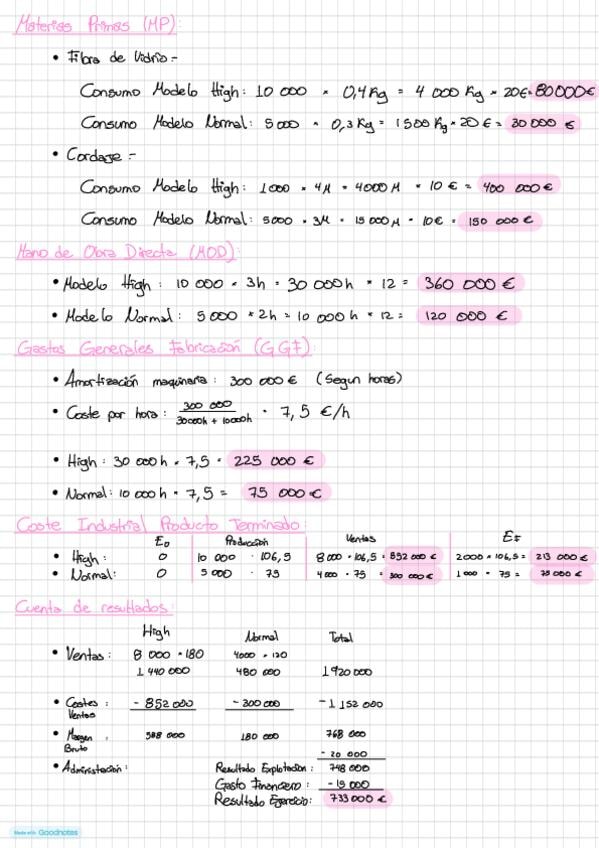 Materias Primas (MP):
• Fibra de Vidrio:-
Consumo Modelo High: 10 000 × 0,4 Kg = 4 000 Kg × 20€ = 80000€
Consumo Modelo Normal: 5000 × 0,3 Kg = 1500 Kg × 20 € = 30 000 €
• Cordage:-
Consumo Modelo High: 1000 × 4M = 4000 M × 10 € = 400 000 €
Consumo Modelo Normal: 5000 × 3M = 15 000 M × 10€ = 150 000 €
Mano de Obra Directa (MOD):
• Modelo High: 10 000 × 3h = 30 000h × 12 = 360 000 €
• Modelo Normal: 5 000 × 2h = 10 000 h × 12 = 120 000 €
Gastos Generales Fabricación (GGF):
• Amortización maquinaria: 300 000 € (Segun horas)
• Coste por hora: 300 000 / 30000h + 10000h = 7,5 €/h
• High: 30 000h × 7,5 = 225 000 €
• Normal: 10 000 h × 7,5 = 75 000 €
Coste Industrial Producto Terminado:
E0 Producción Ventas EF
• High: 0 10 000 · 106,5 8 000 · 106,5 = 852 000 € 2000 × 106,5 = 213 000 €
• Normal: 0 5 000 · 75 4000 · 75 = 300 000 € 1 000 × 75 = 75 000 €
Cuenta de resultados:
High Normal Total
• Ventas: 8 000 × 180 4000 × 120
1 440 000 480 000 1 920 000
• Costes: - 852 000 - 300 000 - 1 152 000
Ventas
• Margen: 588 000 180 000 768 000
Bruto
- 20 000
• Administración: Resultado Explotación: 748 000
Gasto Financiero: - 15 000
Resultado Ejercicio: 733 000 €
Made with Goodnotes